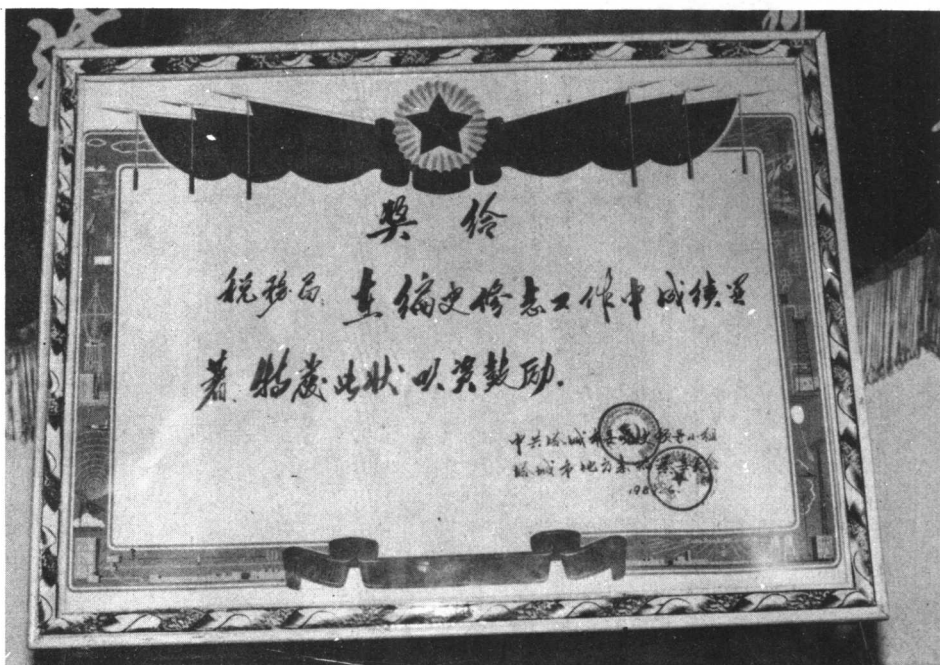 奖给
税务局:在编史修志工作中成绩显
著,特发此状以资鼓励.
中共塔城市委党史领导小组
塔城市地方志编纂委员会